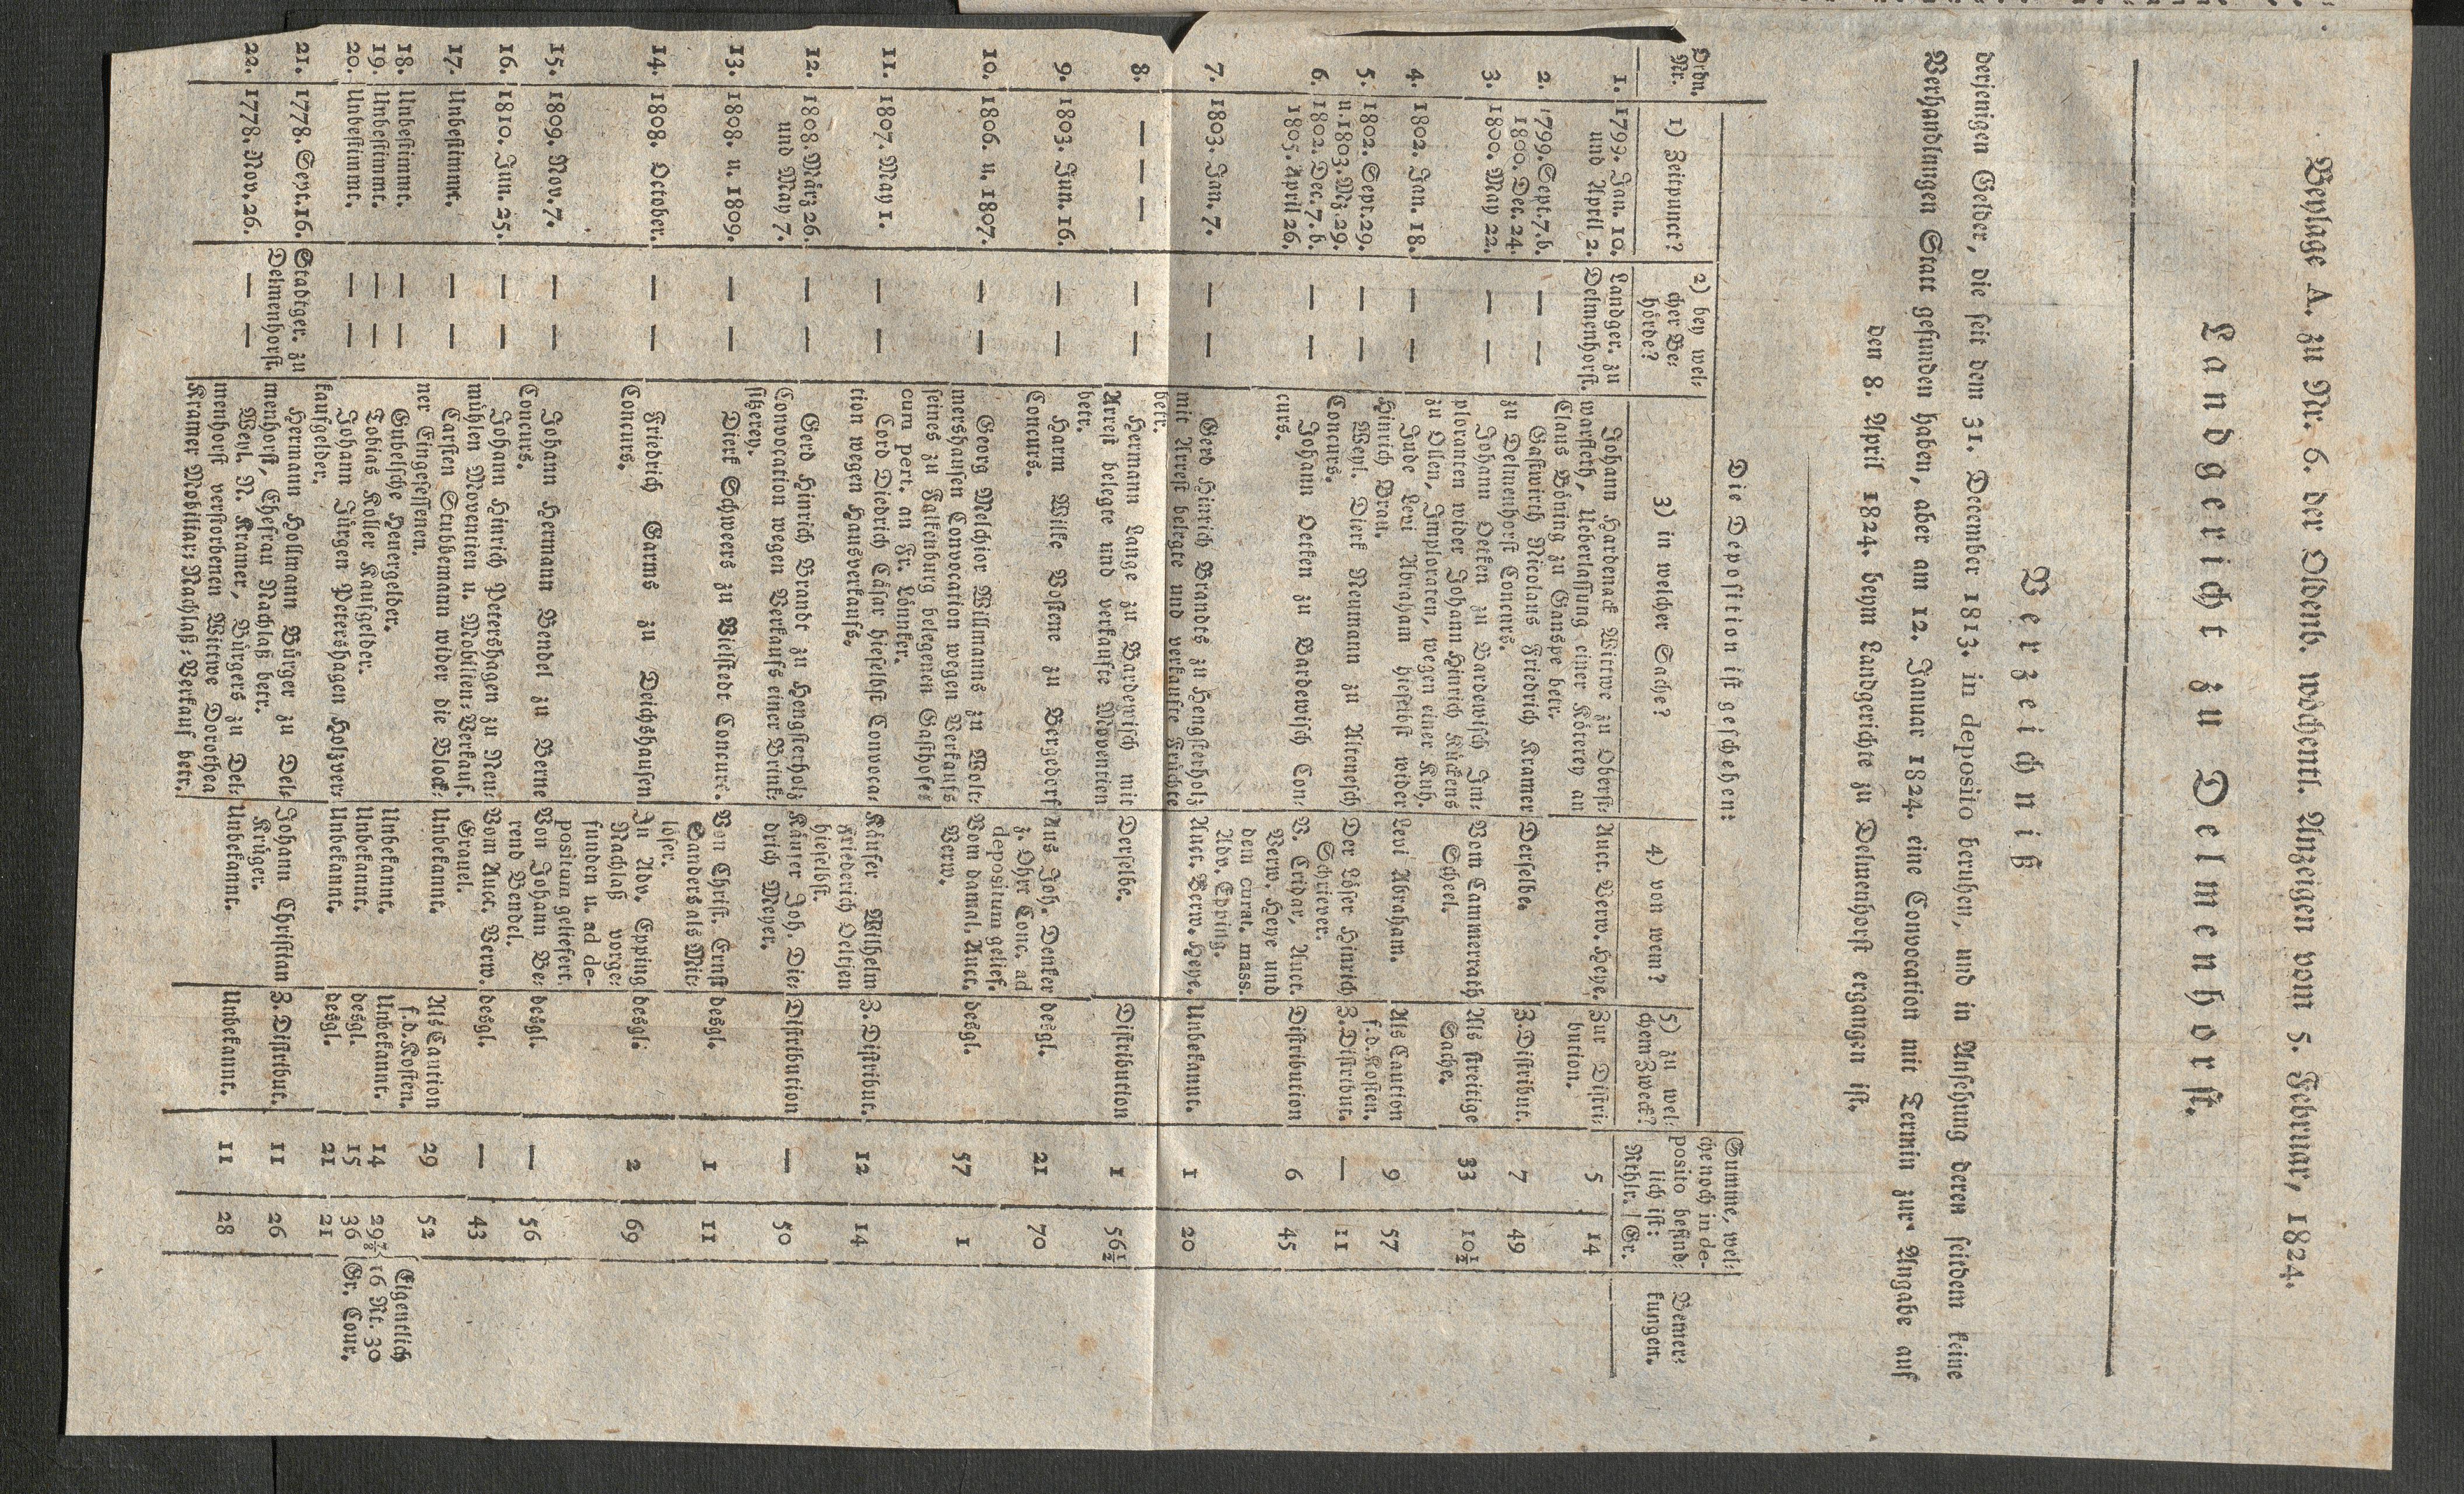 Beylage A. zu Nr. 6. der Oldenb. wöchentl. Anzeigen vom 5. Februar, 1824.
Landgericht zu Delmenhorst.
Verzeichniß
derjenigen Gelder, die seit dem 31. December 1813. in deposito beruhen, und in Ansehung deren seitdem keine
Verhandlungen Statt gefunden haben, aber am 12. Januar 1824. eine Convocation mit Termin zur Angabe auf
den 8. April 1824. beym Landgerichte zu Delmenhorst ergangen ist.
Die Deposition ist geschehen:
Ordn. Nr.
1) Zeitpunct?
2) bey wel-
cher Be-
hörde?
3) in welcher Sache?
4) von wem?
5) zu wel-
chem Zweck?
Summe, wel-
che noch in de-
posito befind-
lich ist:
Rthlr. | Gr.
Bemer-
kungen.
1. 1799. Jan. 10. Landger. zu Johann Hardenack Wittwe zu Oberst- Auct. Verw. Heye. Zur Distri- 5 14
und April 2. Delmenhorst. warfleth, Ueberlassung einer Köterey an bution.
Claus Böning zu Ganspe betr.
2. 1799. Sept. 7. b. — — Gastwirth Nicolaus Friedrich Kramer Derselbe. Z. Distribut. 7 49
1800. Dec. 24. zu Delmenhorst Concurs.
3. 1800. May 22. — — Johann Oetken zu Bardewisch Im- Vom Cammerrath Als streitige 33 10½
ploranten wider Johann Hinrich Kückens Scheel. Sache.
zu Ollen, Imploraten, wegen einer Kuh.
4. 1802. Jan. 18. — — Jude Levi Abraham hieselbst wider Levi Abraham. Als Caution 9 57
Hinrich Brau. f. d. Kosten.
5. 1802. Sept. 29. — — Weyl. Dierk Neumann zu Altenesch Der Löser Hinrich Z. Distribut. — 11
u. 1803. Mz. 29. Concurs. Schriever.
6. 1802. Dec. 7. b. — — Johann Oetken zu Bardewisch Con- V. Cridar, Auct. Distribution 6 45
1805. April 26. curs. Verw. Heye und
dem curat. mass.
Adv. Epping.
7. 1803. Jan. 7. — — Gerd Hinrich Brandts zu Hengsterholz Auct. Verw. Heye. Unbekannt. 1 20
mit Arrest belegte und verkaufte Früchte
betr.
8. — — — — — Hermann Lange zu Bardewisch mit Derselbe. Distribution 1 56½
Arrest belegte und verkaufte Moventien
betr.
9. 1803. Jun. 16. — — Harm Wilke Bostene zu Bergedorf Aus Joh. Denker desgl. 21 70
Concurs. z. Ohe Conc. ad
depositum gelief.
10. 1806. u. 1807. — — Georg Melchior Willmanns zu Wolt- Vom damal. Auct. desgl. 57 1
mershausen Convocation wegen Verkaufs Verw.
seines zu Falkenburg belegenen Gasthofes
cum pert. an Fr. Tönker.
11. 1807. May 1. — — Cord Diedrich Cäsar hieselbst Convoca- Käufer Wilhelm Z. Distribut. 12 14
tion wegen Hausverkaufs. Friederich Oeltjen
hieselbst.
12. 1808. März 26. — — Gerd Hinrich Brandt zu Hengsterholz Käufer Joh. Die- Distribution — 50
und May 7. Convocation wegen Verkaufs einer Brink- drich Meyer.
sitzerey.
13. 1808. u. 1809. — — Dierk Schweers zu Bielstedt Concurs. Von Christ. Ernst desgl. 1 11
Sanders als Mit-
löser.
14. 1808. October. — — Friedrich Carms zu Deichshausen In Adv. Epping desgl. 2 69
Concurs. Nachlaß vorge-
funden u. ad de-
positum geliefert.
15. 1809. Nov. 7. — — Johann Hermann Bendel zu Berne Von Johann Be- desgl. — 56
Concurs. rend Bendel.
16. 1810. Jun. 25. — — Johann Hinrich Petershagen zu Neu- Vom Auct. Verw. desgl. — 43
mühlen Moventien u. Mobilien-Verkauf. Grauel.
17. Unbestimmt. — — Carsten Stubbemann wider die Block- Unbekannt. Als Caution 29 52
ner Eingesessenen. f. d. Kosten.
18. Unbestimmt. — — Gubelsche Heuergelder. Unbekannt. Unbekannt. 14 29⅞ { Eigentlich
19. Unbestimmt. — — Tobias Koller Kaufgelder. Unbekannt. desgl. 15 36 16 Rt. 30
20. Unbestimmt. — — Johann Jürgen Petershagen Holzver- Unbekannt. desgl. 21 21 Gr. Cour.
kaufgelder.
21. 1778. Sept. 16. Stadtger. zu Hermann Hollmann Bürger zu Del- Johann Christian Z. Distribut. 11 26
Delmenhorst. menhorst, Ehefrau Nachlaß betr. Krüger.
22. 1778. Nov. 26. — — Weyl. N. Kramer, Bürgers zu Del- Unbekannt. Unbekannt. 11 28
menhorst verstorbenen Wittwe Dorothea
Kramer Mobiliar-Nachlaß-Verkauf betr.